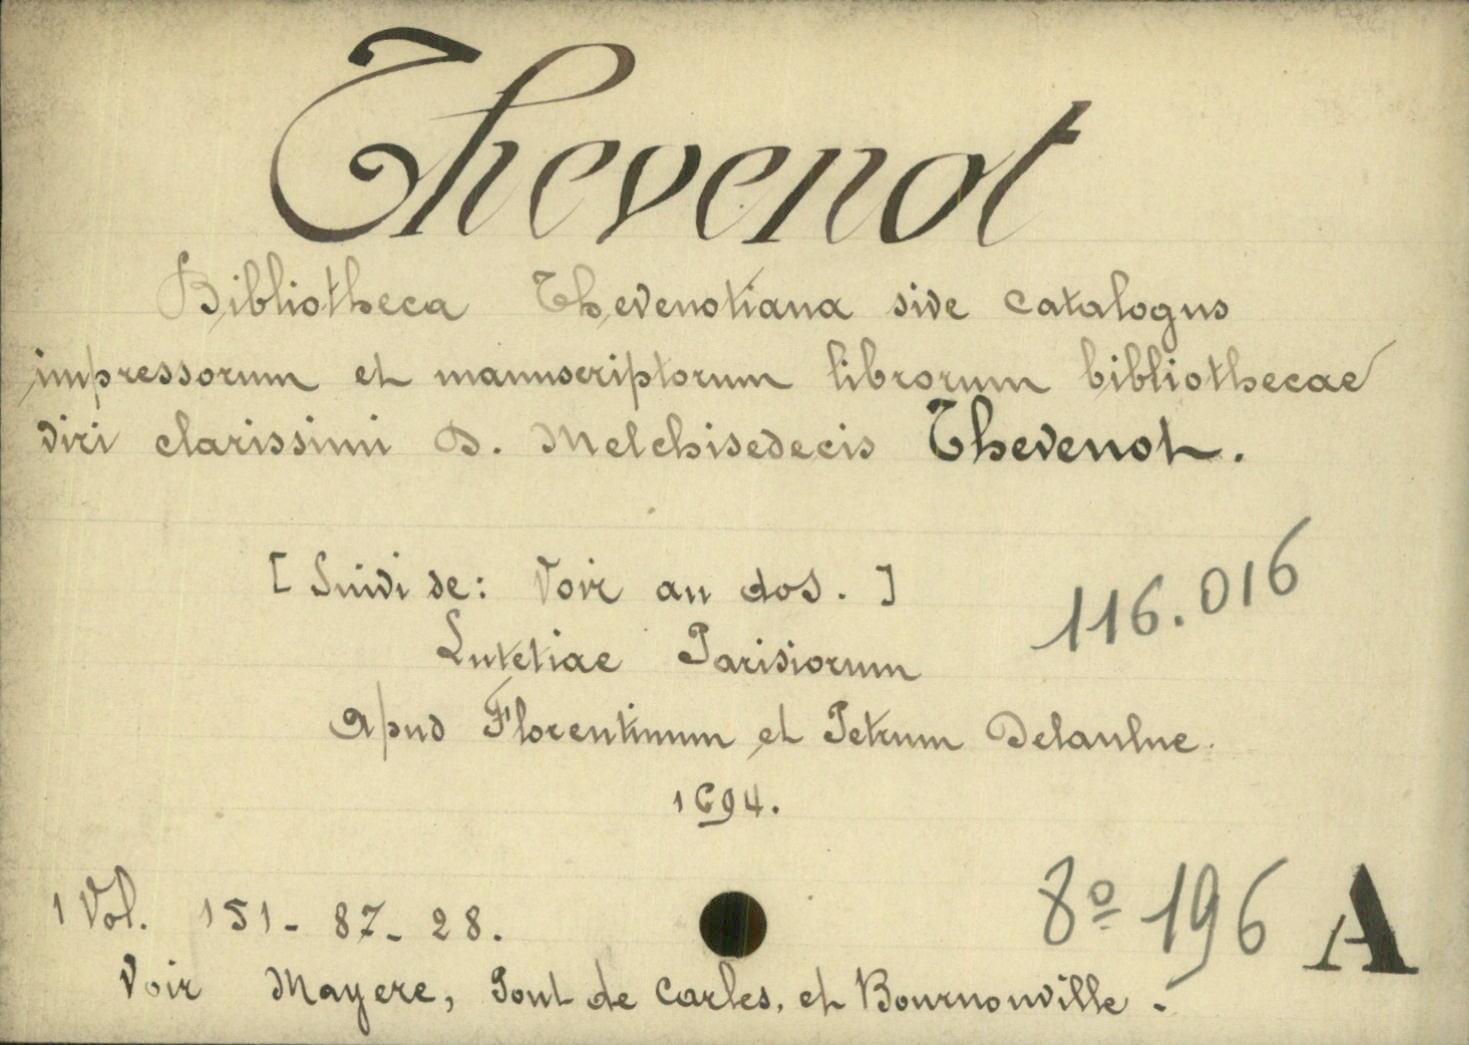 Thevenot
Bibliotheca Thevenotiana sive catalogus
impressorum et manuscriptorum librorum bibliothecae
viri clarissimi D. Melchisedecis Thevenot.
[Suivi de: Voir au dos.]
116.016
Lutetiae Parisiorum
Apud Florentinum et Petrum Delaulne.
1694.
1 Vol. 151-87-28.
8º 196 A
Voir Mayere, Pont de Carles, et Bournonville.